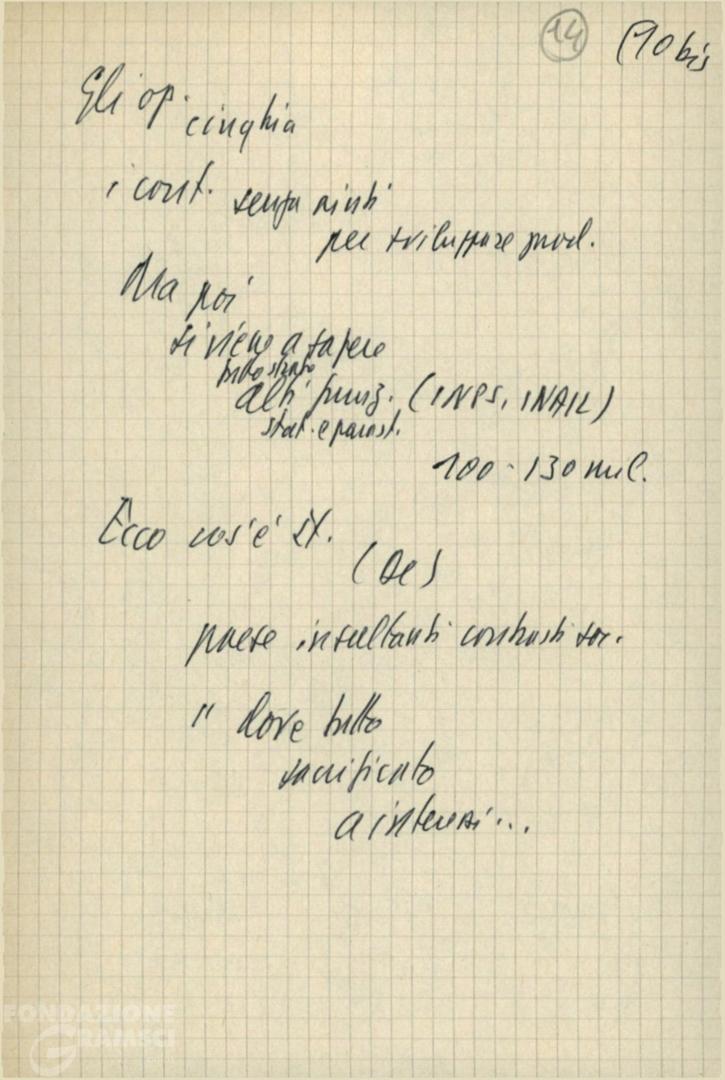 14 (10 bis
Gli op. cinghia
i cont. senza aiuti
per sviluppare prod.
Ma poi
si viene a sapere
alti funz. (INPS, INAIL)
stat. e parast.
100-130 mil.
Ecco cos'è it.
(DC)
paese insultanti contrasti soc.
" dove tutto
sacrificato
a interessi...
FONDAZIONE
GRAMSCI